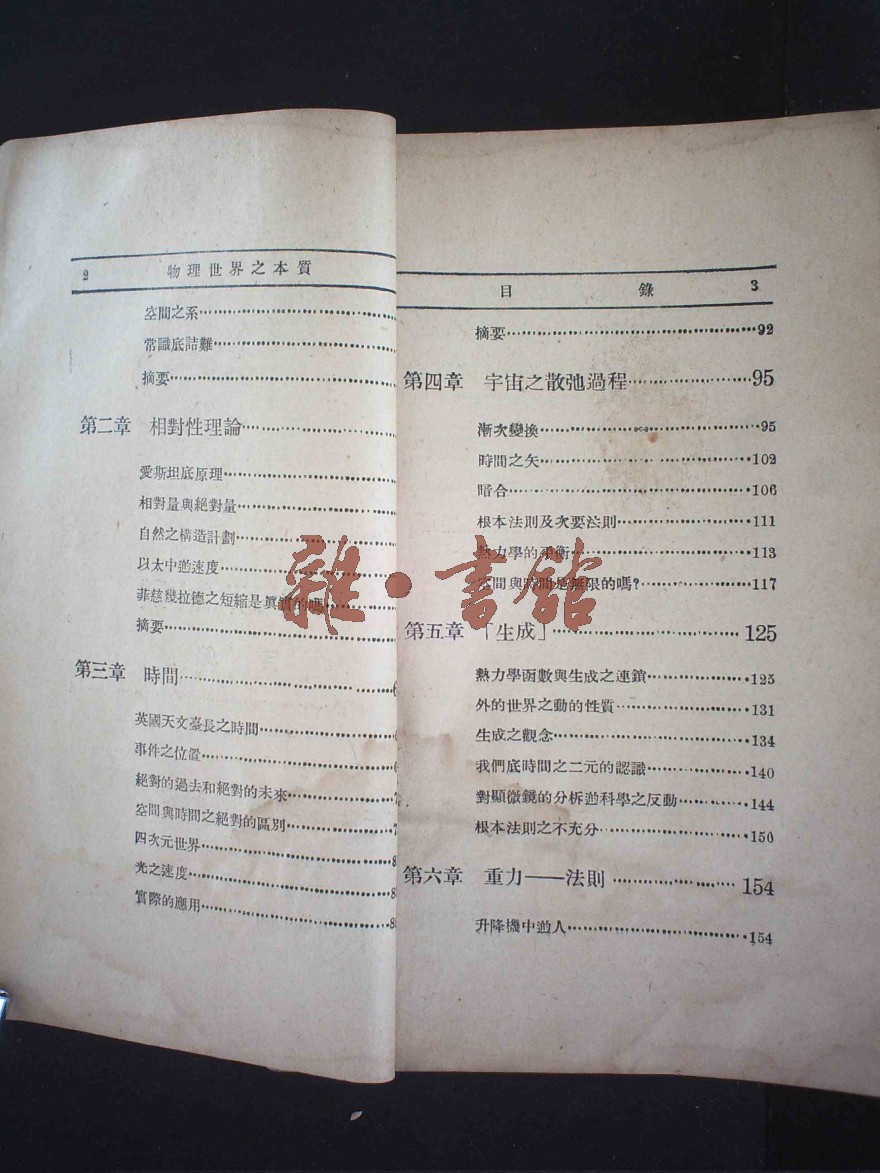 2 物理世界之本質
空間之系
常識底詰難
摘要
第二章 相對性理論
愛斯坦底原理
相對量與絕對量
自然之構造計劃
以太中逊速度
菲慈幾拉德之短縮是真實的嗎
摘要
第三章 時間
英國天文臺長之時間
事件之位置
絕對的過去和絕對的未來
空間與時間之絕對的區別
四次元世界
光之速度
實際的應用
目錄 3
摘要 92
第四章 宇宙之散弛過程 95
漸次變換 95
時間之矢 102
暗合 106
根本法則及次要法則 111
熱力學的平衡 113
空間與時間是無限的嗎? 117
第五章 「生成」 125
熱力學函數與生成之連鎖 125
外的世界之動的性質 131
生成之觀念 134
我們底時間之二元的認識 140
對顯微鏡的分析逊科學之反動 144
根本法則之不充分 150
第六章 重力——法則 154
升降機中逊人 154
雜·書館